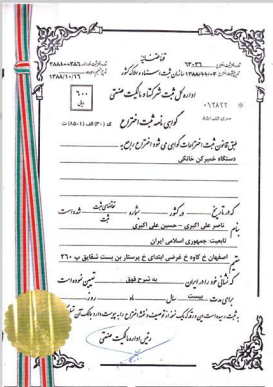 قوه قضائیه
سازمان ثبت اسناد و املاک کشور
اداره کل ثبت شرکتها و مالکیت صنعتی
۶۰۰
ریال
گواهی نامه ثبت اختراع
طبق قانون ثبت اختراعات گواهی می شود اختراع راجع به
دستگاه خمیرکن خانگی
که در تاریخ در کشور بشماره تقاضای ثبت شده است
بنام ناصر علی اکبری – حسین علی اکبری
تابعیت: جمهوری اسلامی ایران
اصفهان خ کاوه خ غرضی ابتدای خ پرستار بن بست شقایق پ ۲۶۰
که نشانی خود را در ایران به شرح فوق تعیین نموده است
برای مدت بیست سال ماه روز
رئیس اداره مالکیت صنعتی